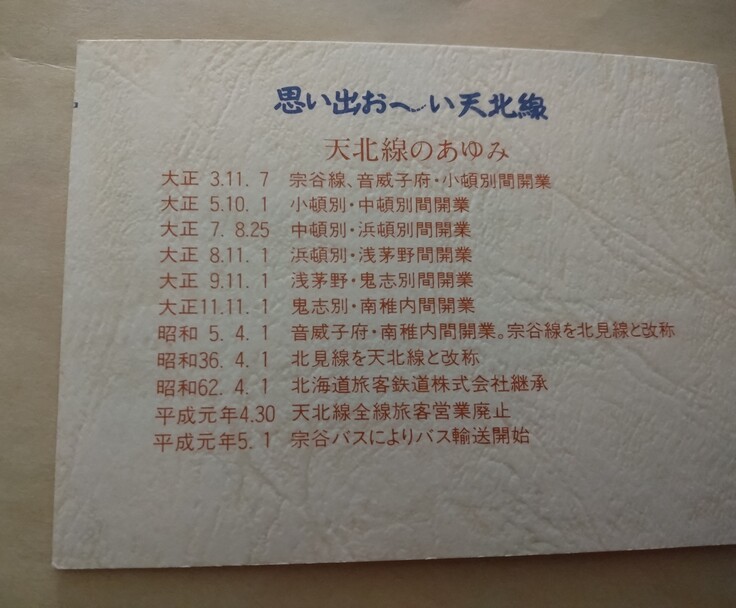 思い出お〜い天北線
天北線のあゆみ
大正 3.11. 7 宗谷線、音威子府・小頓別間開業
大正 5.10. 1 小頓別・中頓別間開業
大正 7. 8.25 中頓別・浜頓別間開業
大正 8.11. 1 浜頓別・浅茅野間開業
大正 9.11. 1 浅茅野・鬼志別間開業
大正11.11. 1 鬼志別・南稚内間開業
昭和 5. 4. 1 音威子府・南稚内間開業。宗谷線を北見線と改称
昭和36. 4. 1 北見線を天北線と改称
昭和62. 4. 1 北海道旅客鉄道株式会社継承
平成元年4.30 天北線全線旅客営業廃止
平成元年5. 1 宗谷バスによりバス輸送開始